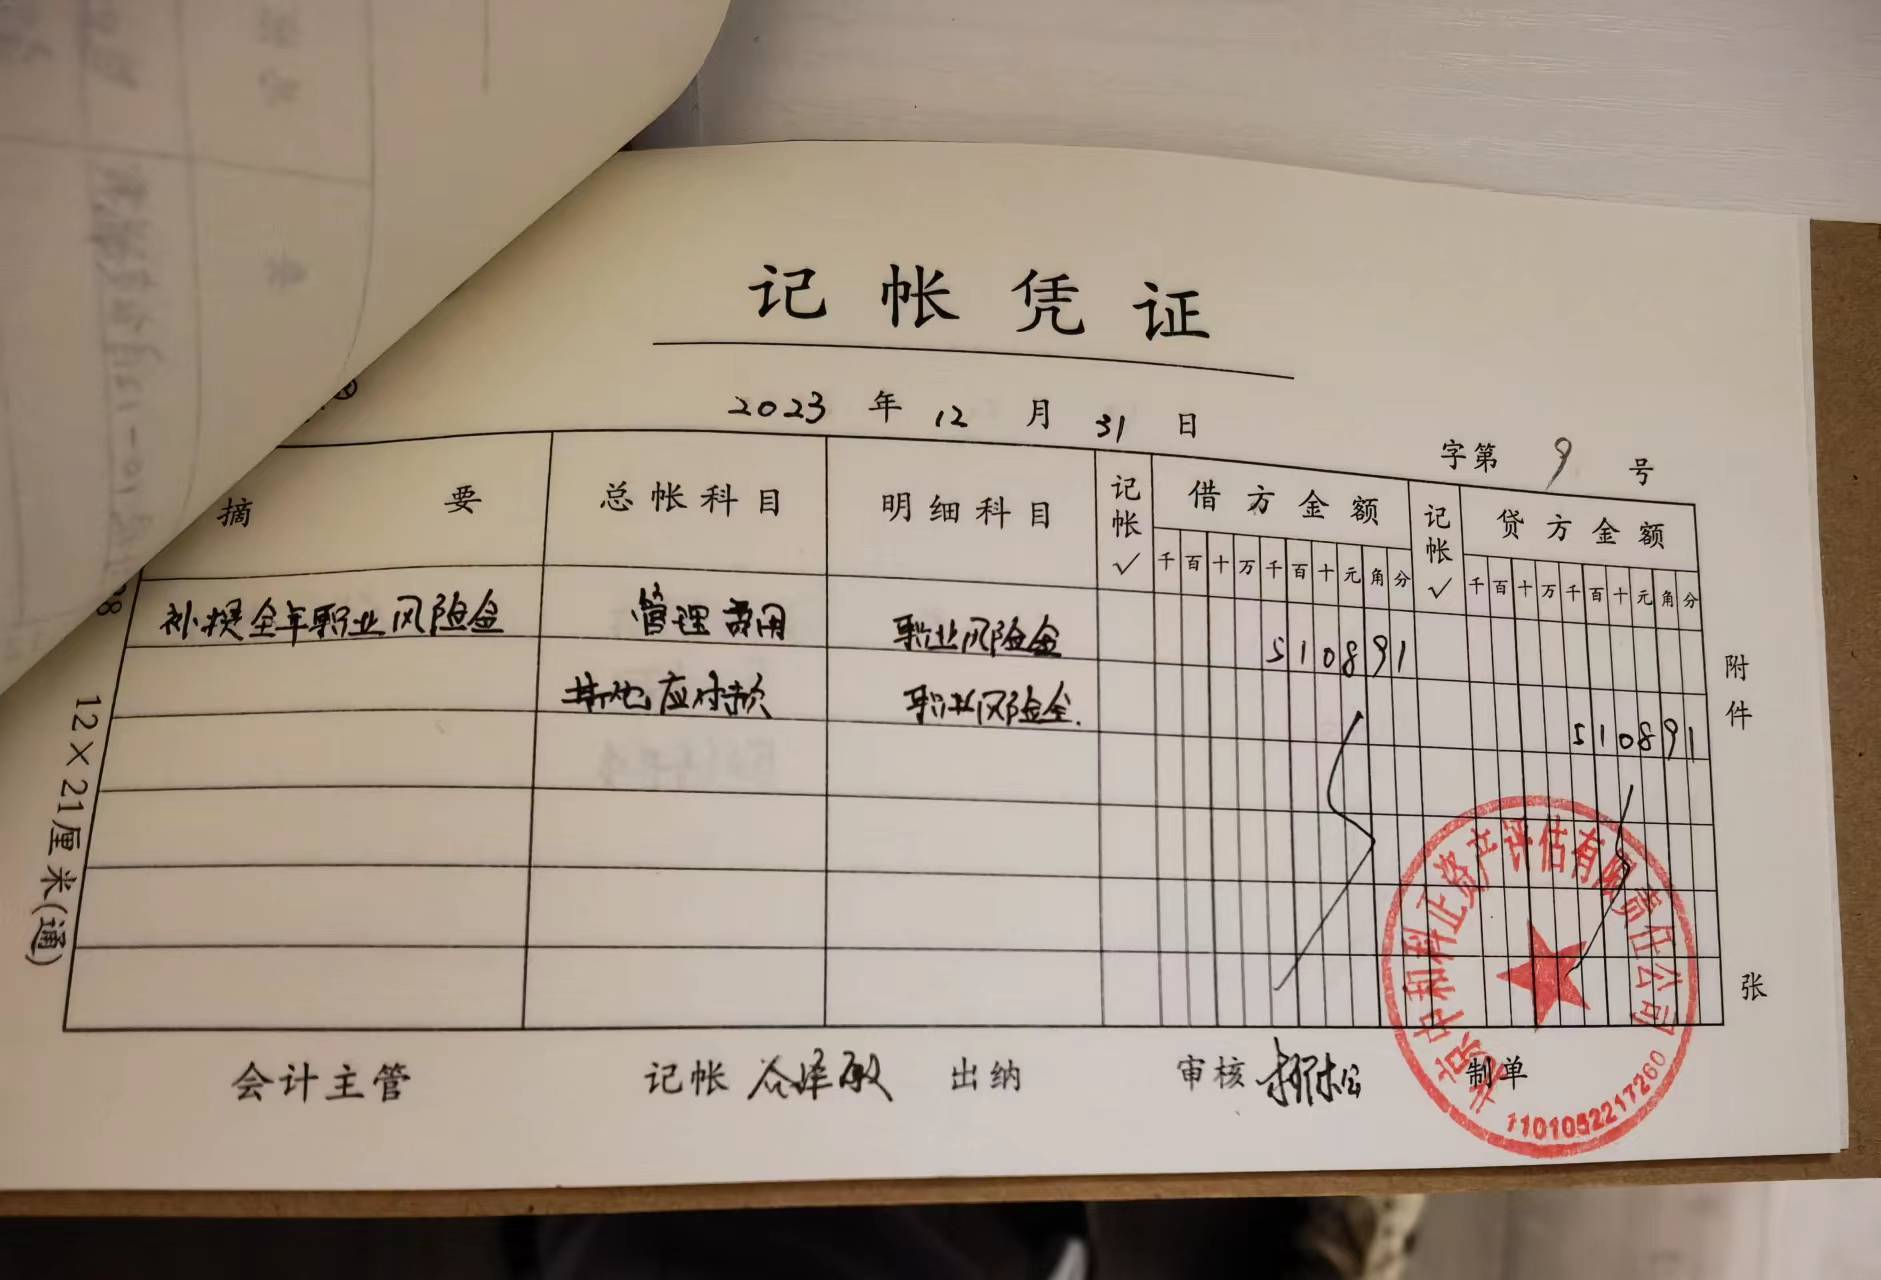 记帐凭证
2023 年 12 月 31 日
字第 9 号
摘要 总帐科目 明细科目 记帐✓ 借方金额 记帐✓ 贷方金额
千百十万千百十元角分 千百十万千百十元角分
补提全年职业风险金 管理费用 职业风险金 510891
其他应付款 职业风险金. 510891
附件
张
会计主管 记帐 谷泽敏 出纳 审核 制单
12×21厘米(通)
北京中和科正资产评估有限责任公司
1101052217260